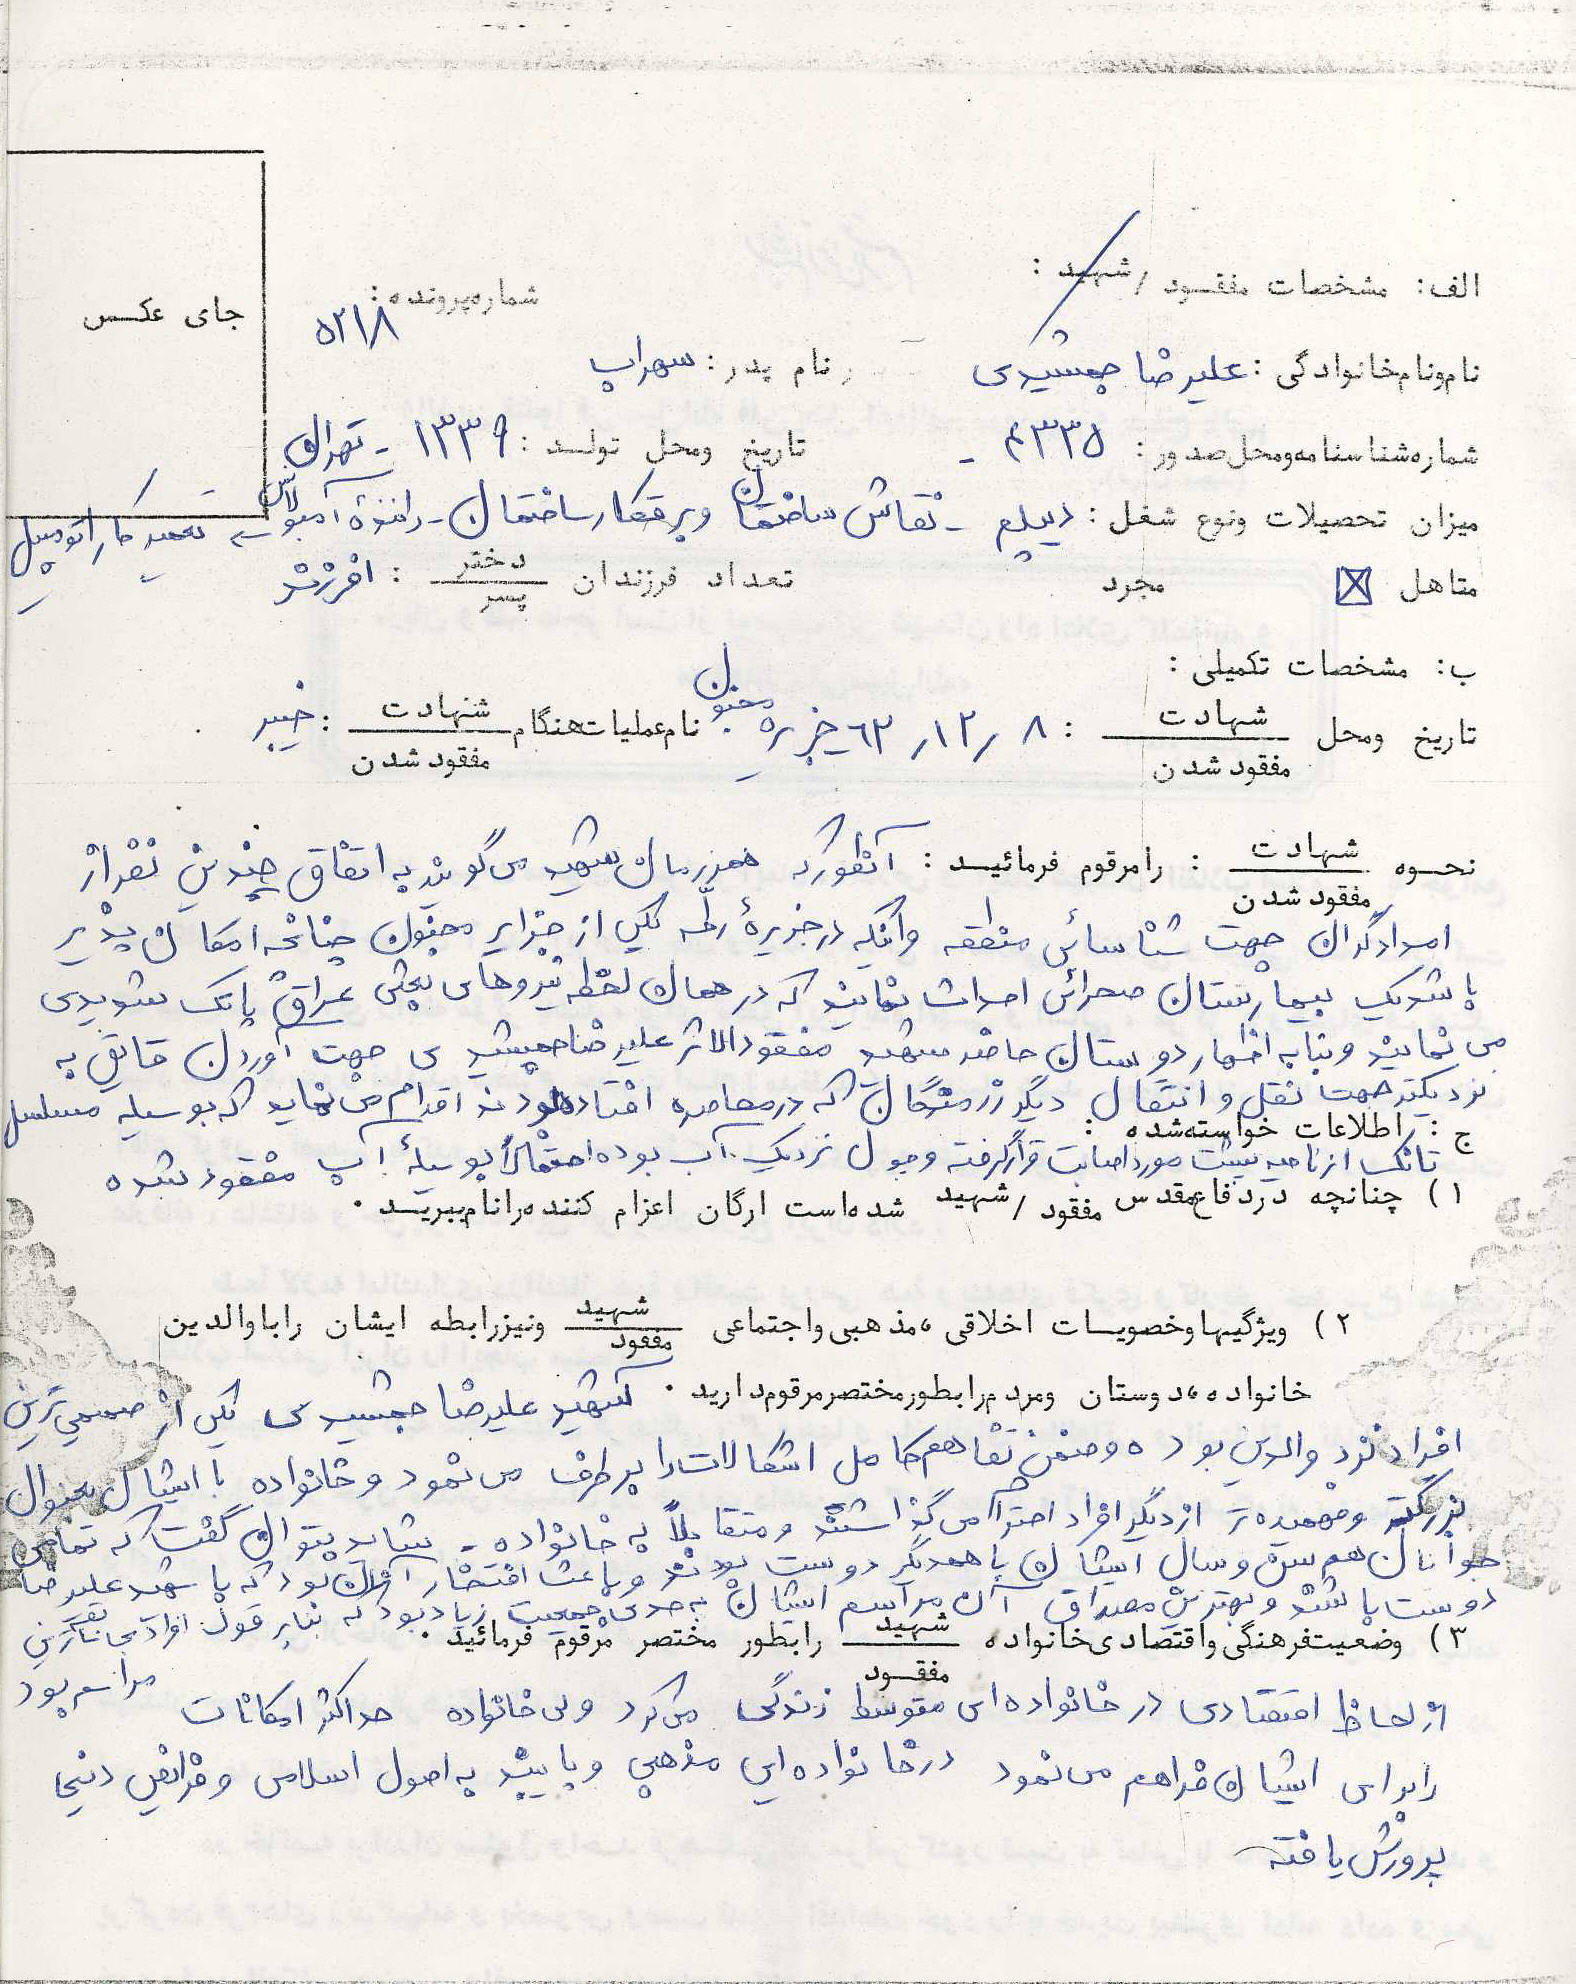 الف: مشخصات مفقود / شهید :
شماره پرونده: ۵۲۱۸
جای عکس
نام و نام خانوادگی : علیرضا جمشیدی نام پدر : سهراب
شماره شناسنامه و محل صدور : تاریخ و محل تولد : ۱۳۳۹ - تهران
میزان تحصیلات و نوع شغل : دیپلم - نقاش ساختمان و برقکار ساختمان - راننده آمبولانس - تعمیر کار اتومبیل
متاهل ☒ مجرد تعداد فرزندان دختر / پسر : ۱ فرزند
ب: مشخصات تکمیلی :
تاریخ و محل شهادت / مفقود شدن : ۸ / ۱۲ / ۶۲ جزیره مجنون نام عملیات هنگام شهادت / مفقود شدن : خیبر
نحوه شهادت / مفقود شدن : را مرقوم فرمائید : آنطور که همرزمان شهید می گویند به اتفاق چندین نفر از
امدادگران جهت شناسائی منطقه و اینکه در جزیرهٔ رطه یکی از جزایر مجنون چنانچه امکان پذیر
باشد یک بیمارستان صحرائی احداث نمایند که در همان لحظه نیروهای بعثی عراق پاتک شدیدی
می نمایند و بنا به اظهار دوستان حاضر شهید مفقودالاثر علیرضا جمشیدی جهت آوردن قایق به
نزدیکتر جهت نقل و انتقال دیگر رزمندگان که در محاصره افتاده بودند اقدام می نماید که بوسیله مسلسل
ج : اطلاعات خواسته شده :
تانک از ناحیه مورد اصابت قرار گرفته و چون نزدیک آب بوده احتمالاً بوسیلهٔ آب مفقود شده
۱) چنانچه در دفاع مقدس مفقود / شهید شده است ارگان اعزام کننده را نام ببرید .
۲) ویژگیها و خصوصیات اخلاقی ، مذهبی و اجتماعی شهید / مفقود و نیز رابطه ایشان را با والدین
خانواده ، دوستان و مردم را بطور مختصر مرقوم دارید . شهید علیرضا جمشیدی یکی از صمیمی ترین
افراد نزد والدین بوده و ضمن تفاهم کامل اشکالات را برطرف می نمود و خانواده با ایشان بعنوان
بزرگتر و فهمیده تر از دیگر افراد احترام می گذاشتند و متقابلاً به خانواده - شاید بتوان گفت که تمامی
جوانان هم سن و سال ایشان با همدیگر دوست بودند و باعث افتخار آنان بود که با شهید علیرضا
دوست باشند و بهترین مصداق آن مراسم ایشان به حدی جمعیت زیاد بود که بنابر قول افراد
۳) وضعیت فرهنگی و اقتصادی خانواده شهید / مفقود را بطور مختصر مرقوم فرمائید .
مراسم بود
از لحاظ اقتصادی در خانواده ای متوسط زندگی می کرد ولی خانواده حداکثر امکانات
را برای ایشان فراهم می نمود در خانواده ایی مذهبی و پایبند به اصول اسلامی و فرائض دینی
پرورش یافته